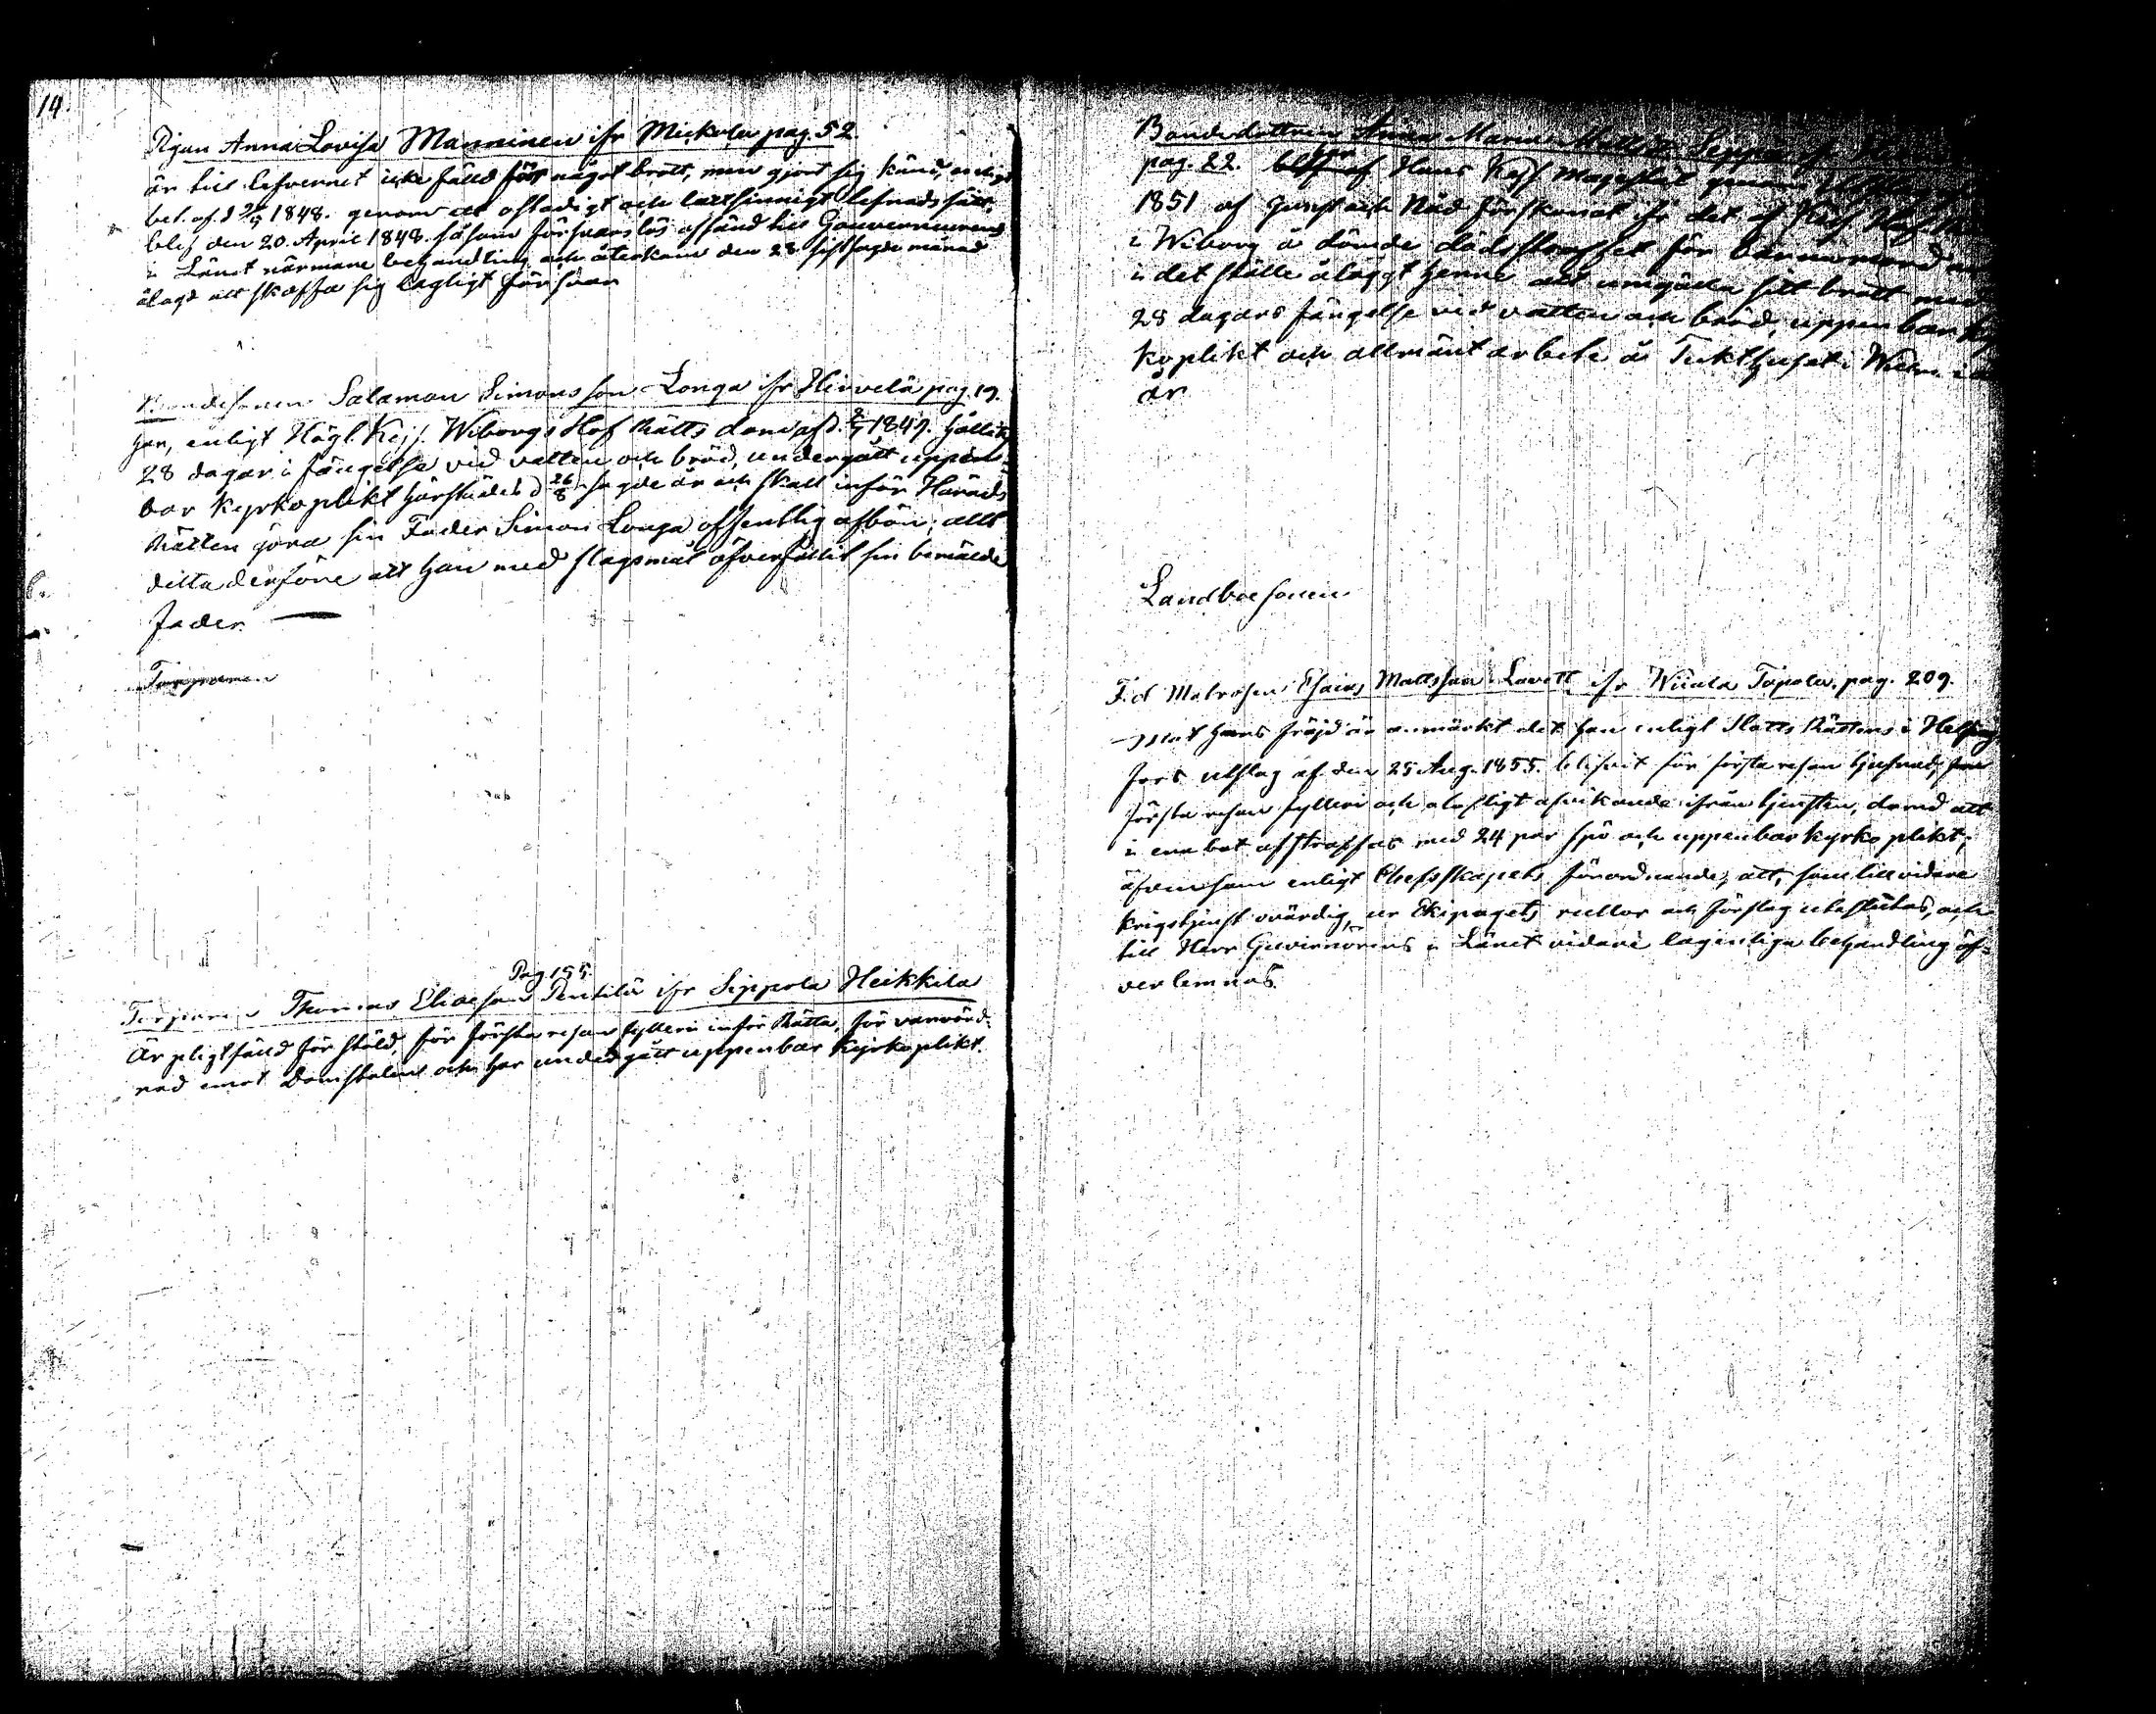 14.
Pigan Anna Lovisa Manninen ifr Mickola pag. 52.
är till lefvernet icke fälld för något brott, men gjort sig känd, enligt
bet. af d 1848. genom ett ostadigt och lättsinnigt lefnadssätt,
blef den 20. April 1848. såsom försvarslös afsänd till Gouverneurens
i Länet närmare behandling och återkom den 28 sistsagde månad
ålagd att skaffa sig lagligt försvar
Bondesonen Salamon Simonsson Longa ifr Hirvelä pag. 19.
har, enligt Högl. Kejs. Wiborgs Hof Rätts dom af d. 1847. hållits
28 dagar i fängelse vid vatten och bröd, undergått uppen-
bar kyrkoplikt härstädes d 26/8 sagde år och skall inför Härads
Rätten göra sin Fader Simon Longa offentlig afbön; allt
detta derföre att han med slagsmål öfverfallit sin bemälde
Fader.
Torparen
Pag. 155.
Torparen Thomas Eliasson Penttilä ifr Sippola Heikkilä
Är pligtfälld för stöld, för första resan fylleri inför Rätta, för vanvörd-
nad emot Domstolen och har undergått uppenbar kyrkoplikt.
Bondedottren Anna Maria Seppä ifr
pag. 22. af Hans Kejs Majestät genom
1851 af Gunst och Nåd förskonat ifr det af Kejs. Hof
i Wiborg å dömde dödsstraffet för barnamord
i det ställe ålaggt henne att umgälla sitt brott med
28 dagars fängelse vid vatten och bröd, uppenbar
koplikt och allmänt arbete å Tukthuset i
år
Landboesonen
F.d Matrosen Esaias Mattsson Lavett ifr Wiiala Topola. pag. 209.
Mot hans fräjd är anmärkt det han enligt Slotts Rättens i Helsing
fors utslag af den 25 Aug. 1855. blifvit för första resan tjufnad,
första resan fylleri och olofligt afvikande ifrån tjensten, dömd att
i ena bot afstraffas med 24 par spö och uppenbar kyrkoplikt;
äfvensom enligt Chefsskapets förordnande, att, som till vidare
krigstjenst ovärdig, ur Ekipagets rullor och förslag uteslutas, och
till Herr Guvernörens i Länet vidare lagenliga behandling öf-
verlemnas.